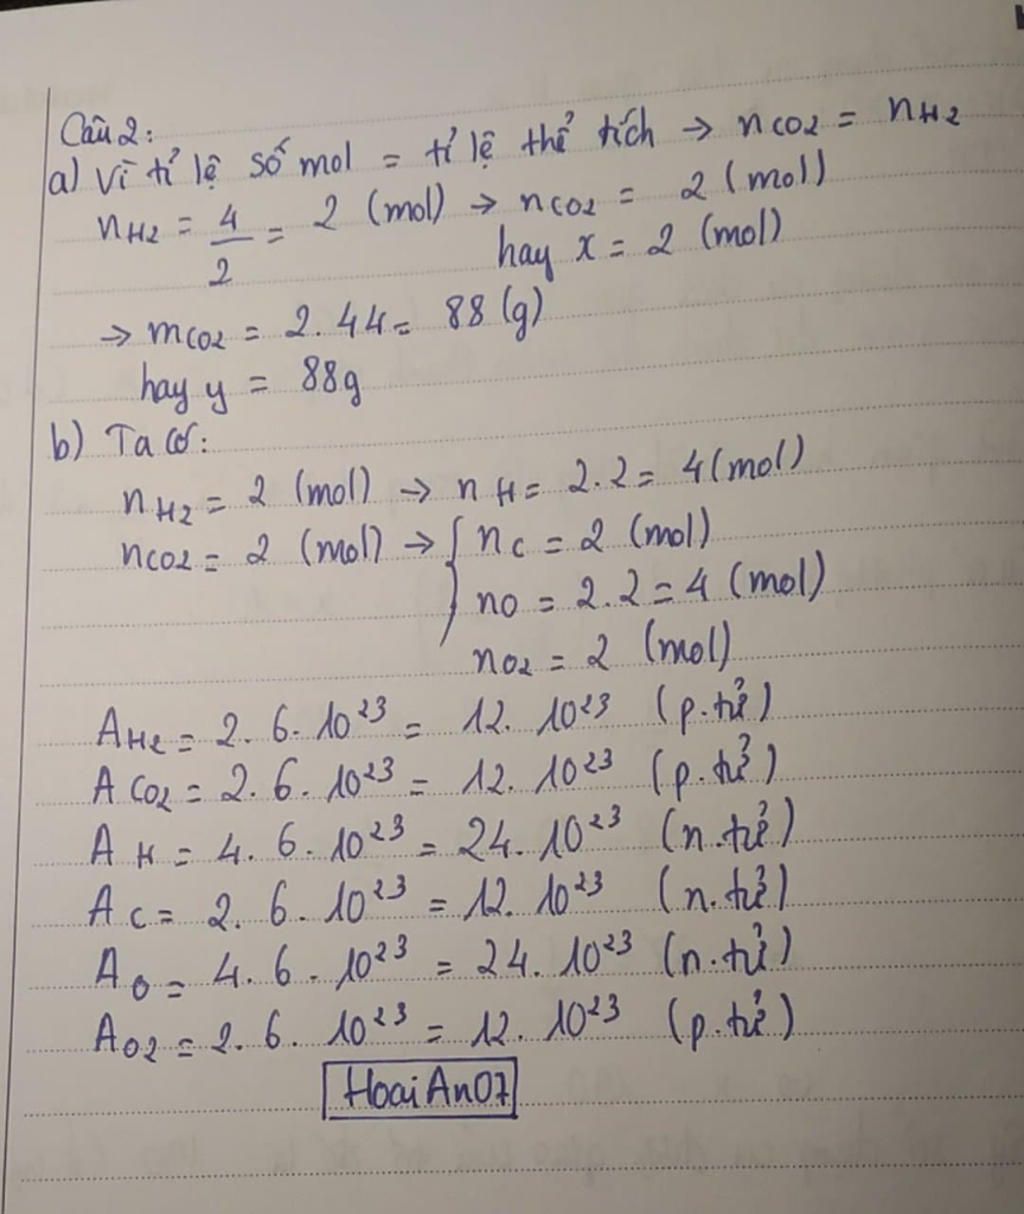 Câu 2:
a) Vì tỉ lệ số mol = tỉ lệ thể tích → nCO2 = nH2
nH2 = 4/2 = 2 (mol) → nCO2 = 2 (mol)
hay x = 2 (mol)
→ mCO2 = 2.44 = 88 (g)
hay y = 88g
b) Ta có:
nH2 = 2 (mol) → nH = 2.2 = 4 (mol)
nCO2 = 2 (mol) → { nC = 2 (mol)
nO = 2.2 = 4 (mol)
nO2 = 2 (mol)
AH2 = 2.6.10²³ = 12.10²³ (p.tử)
ACO2 = 2.6.10²³ = 12.10²³ (p.tử)
AH = 4.6.10²³ = 24.10²³ (n.tử)
AC = 2.6.10²³ = 12.10²³ (n.tử)
AO = 4.6.10²³ = 24.10²³ (n.tử)
AO2 = 2.6.10²³ = 12.10²³ (p.tử)
HoaiAn07